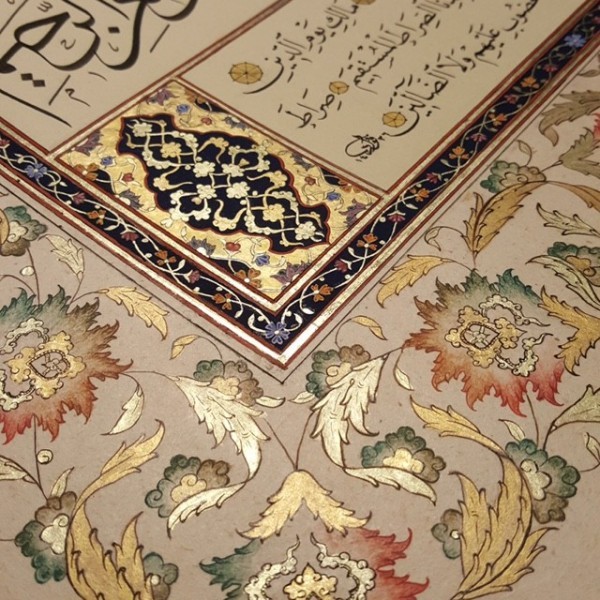 الرَّحِيمِ
مَالِكِ يَوْمِ الدِّينِ
الصِّرَاطَ الْمُسْتَقِيمَ صِرَاطَ
عَلَيْهِمْ وَلَا الضَّالِّينَ